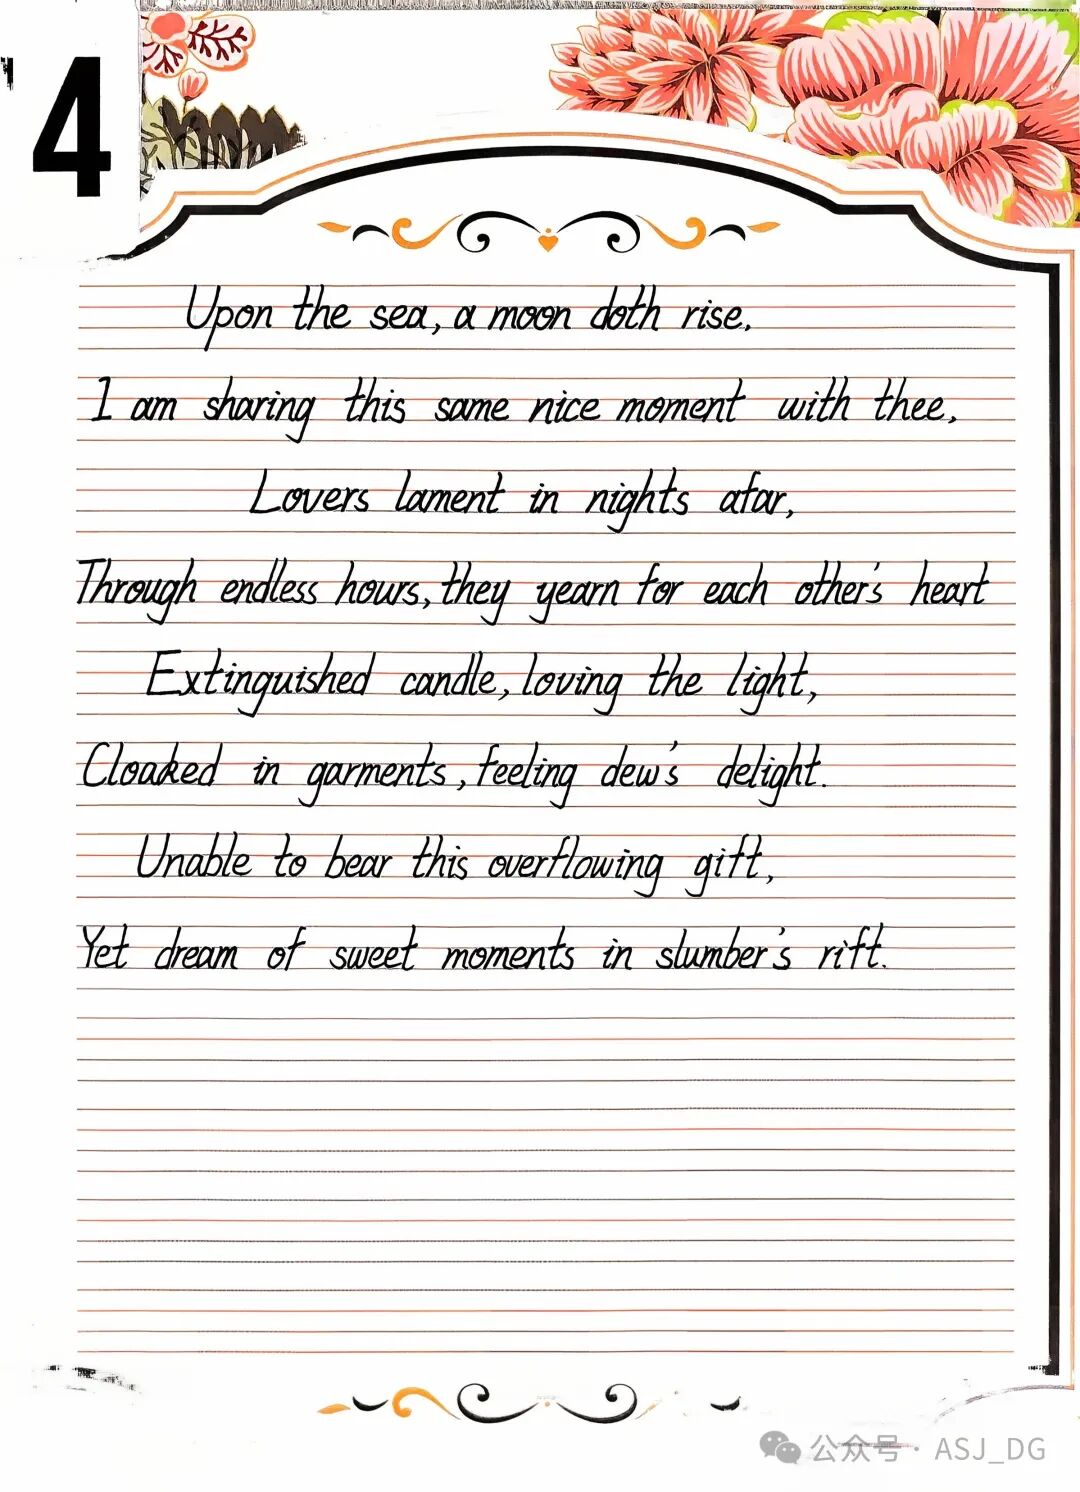 4
Upon the sea, a moon doth rise.
I am sharing this same nice moment with thee,
Lovers lament in nights afar,
Through endless hours, they yearn for each other's heart
Extinguished candle, loving the light,
Cloaked in garments, feeling dew's delight.
Unable to bear this overflowing gift,
Yet dream of sweet moments in slumber's rift.
公众号 · ASJ_DG